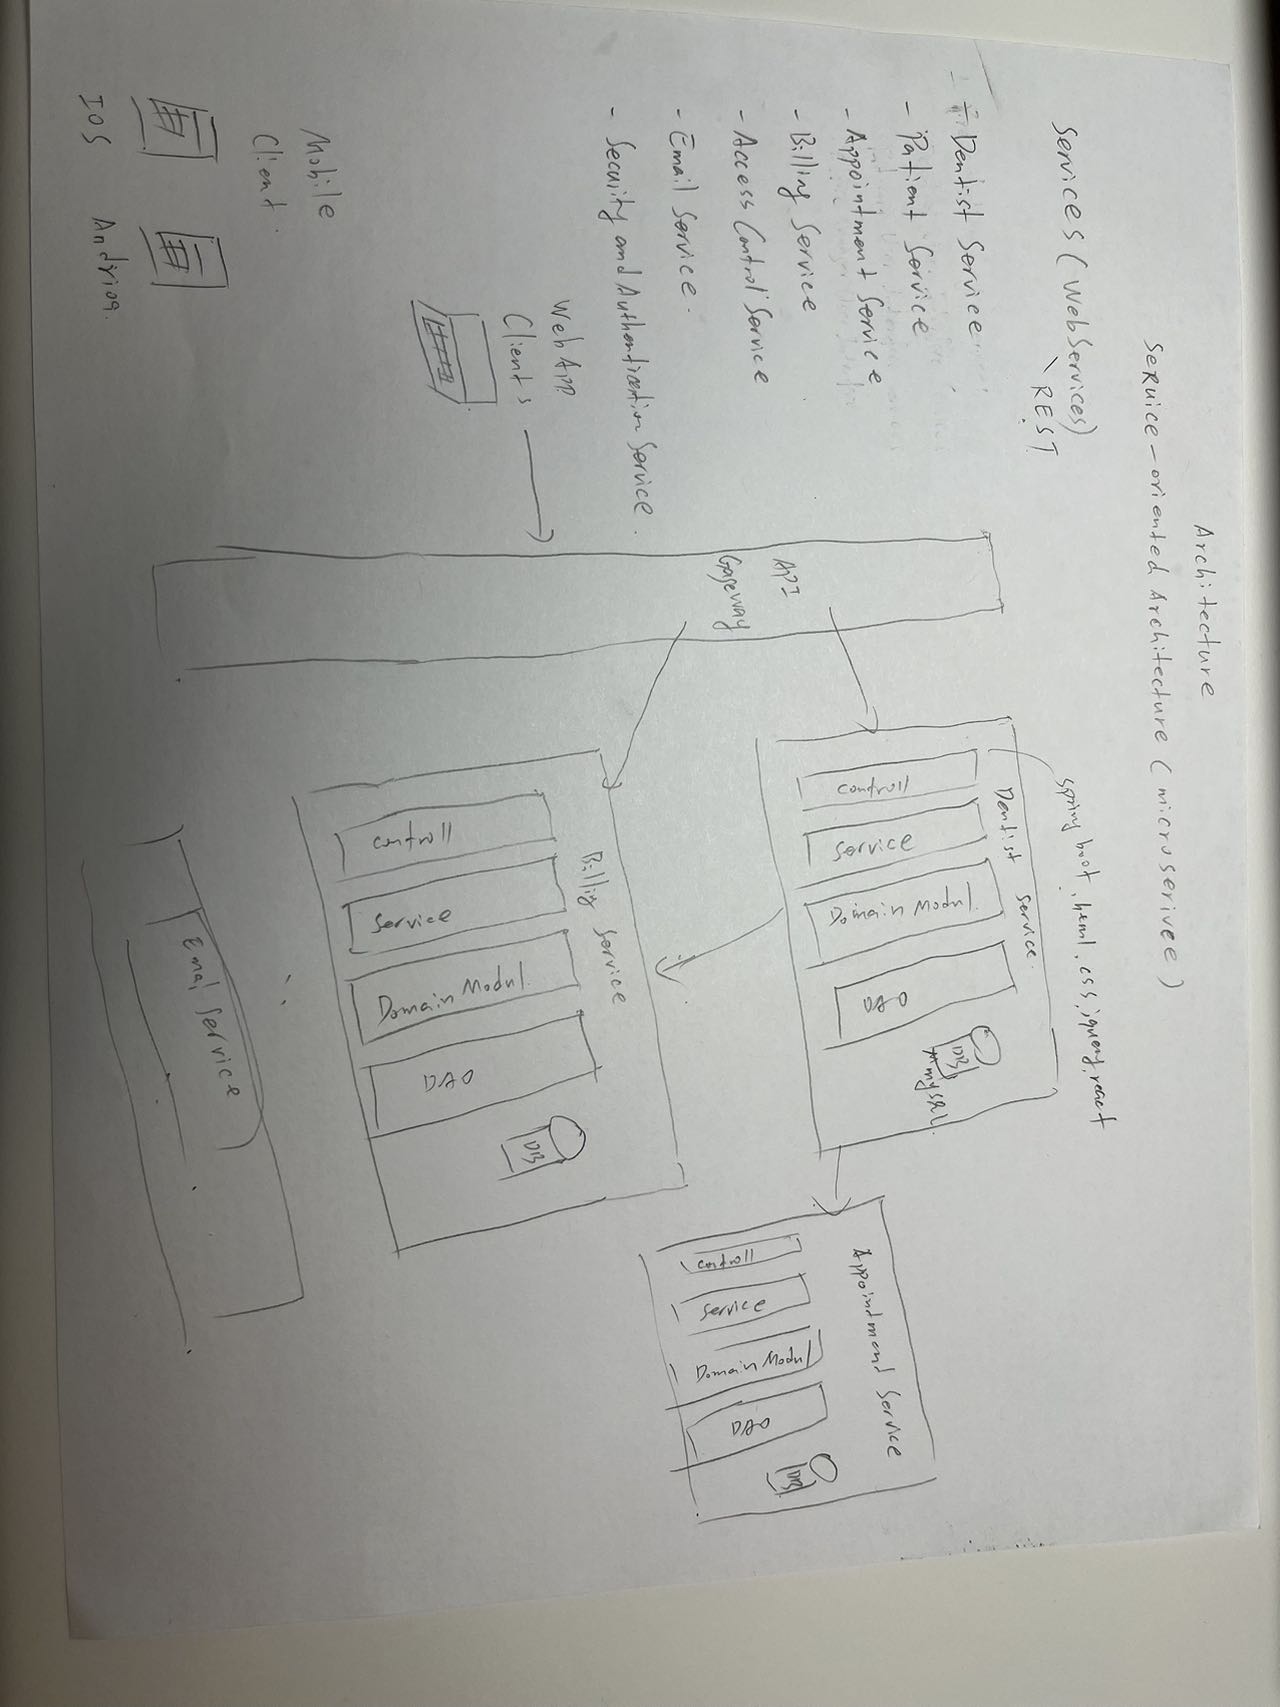 Architecture
Service-oriented Architecture (microserivee)
Services (WebServices)
REST
- Dentist Service
- Patient Service
- Appointment Service
- Billing Service
- Access Control Service
- Email Service.
- Security and Authentication Service.
Web App
Clients
Mobile
Client.
IOS
API
Spring boot, html, css, jquery, react
Dentist Service.
controll
Service
Domain Modul.
DAO
DB
mysql.
Billing Service
controll
Service
Domain Modul.
DAO
DB
Appointmend Service
controll
Service
Domain Modul
DAO
DB
Emal Service